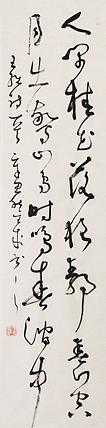 人閒桂花落夜靜春山空
月出驚山鳥時鳴春澗中
王維詩